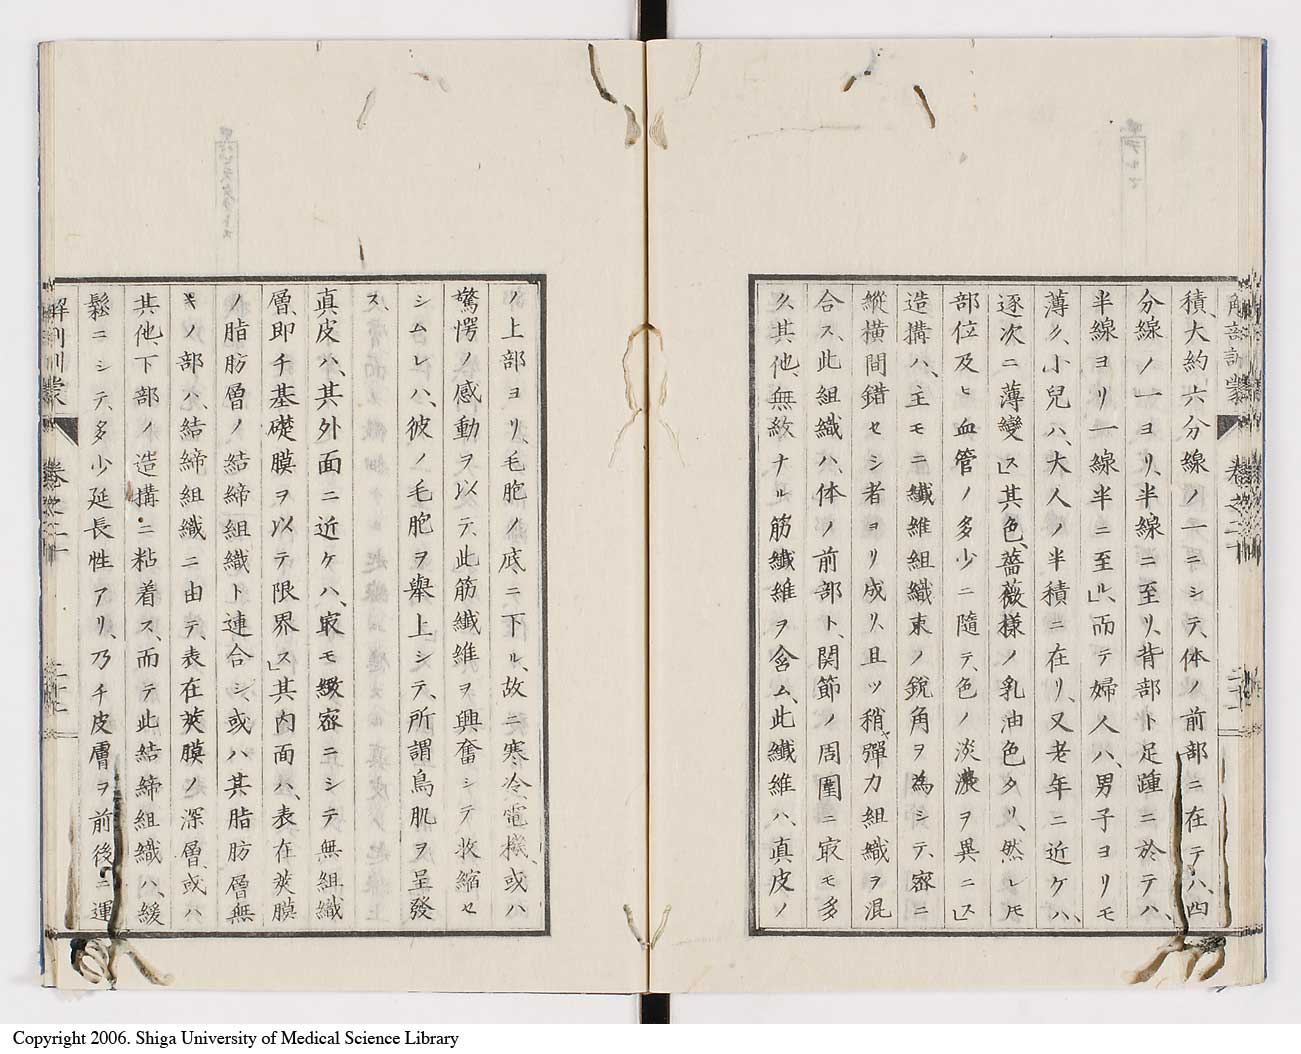 解剖訓蒙
卷之二十
積、大約六分線ノ一ニシテ、体ノ前部ニ在テハ、四
分線ノ一ヨリ、半線ニ至リ、背部ト足踵ニ於テハ、
半線ヨリ一線半ニ至ル」、而テ婦人ハ、男子ヨリモ
薄ク、小兒ハ、大人ノ半積ニ在リ、又老年ニ近ケハ、
逐次ニ薄變ス」其色、薔薇樣ノ乳油色タリ、然レモ
部位及ヒ血管ノ多少ニ隨テ、色ノ淡濃ヲ異ニス」
造搆ハ、主モニ纎維組織束ノ銳角ヲ為シテ、宻ニ
縱横間錯セシ者ヨリ成リ、且ツ稍彈力組織ヲ混
合ス、此組織ハ、体ノ前部ト、関節ノ周圍ニ㝡モ多
ク其他、無紋ナル筋纎維ヲ含ム、此纎維ハ、真皮ノ
ノ上部ヨリ、毛胞ノ底ニ下ル、故ニ寒冷、電機、或ハ
驚愕ノ感動ヲ以テ、此筋纎維ヲ興奮シテ收縮セ
シムレハ、彼ノ毛胞ヲ舉上シテ、所謂鳥肌ヲ呈發
ス
真皮ハ、其外面ニ近ケハ、㝡モ緻宻ニシテ無組織
層、即チ基礎膜ヲ以テ限界ス」其内面ハ、表在莢膜
ノ脂肪層ノ結締組織ト連合シ、或ハ其脂肪層無
キノ部ハ、結締組織ニ由テ、表在莢膜ノ深層、或ハ
其他、下部ノ造搆ニ粘着ス、而テ此結締組織ハ、緩
鬆ニシテ、多少延長性アリ、乃チ皮膚ヲ前後ニ運
解剖訓蒙
卷之二十
Copyright 2006. Shiga University of Medical Science Library